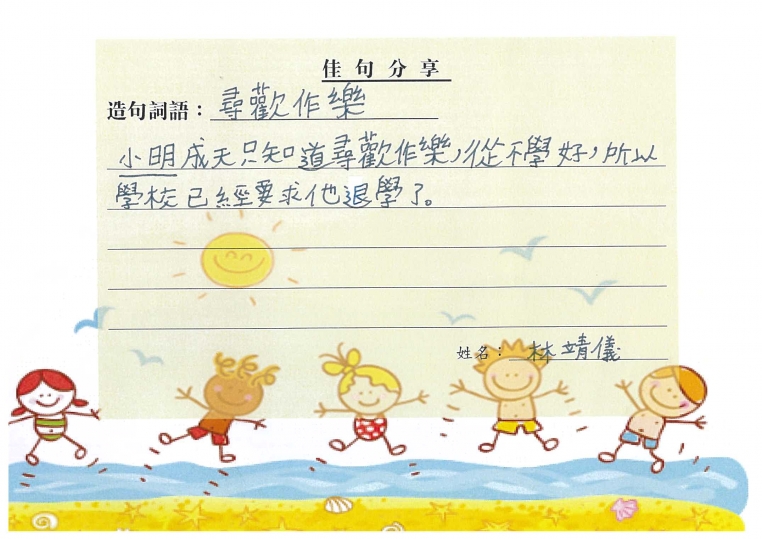 佳句分享
造句詞語：尋歡作樂
小明成天只知道尋歡作樂，從不學好，所以
學校已經要求他退學了。
姓名：林靖儀